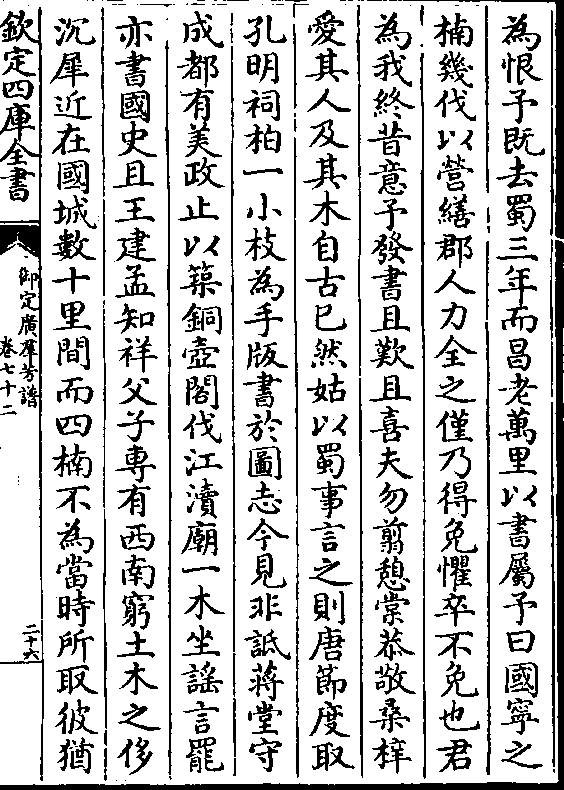 為恨予既去蜀三年而昌老萬里以書屬予曰國寧之
楠幾伐以營繕郡人力全之僅乃得免懼卒不免也君
為我終昔意予發書且歎且喜夫勿翦憩棠恭敬桑梓
愛其人及其木自古已然姑以蜀事言之則唐節度取
孔明祠柏一小枝為手版書於圖志今見非詆蔣堂守
成都有美政止以築銅壺閣伐江瀆廟一木坐謡言罷
亦書國史且王建孟知祥父子專有西南窮土木之侈
沉犀近在國城數十里間而四楠不為當時所取彼猶
欽定四庫全書
御定廣羣芳譜
卷七十二
二十六